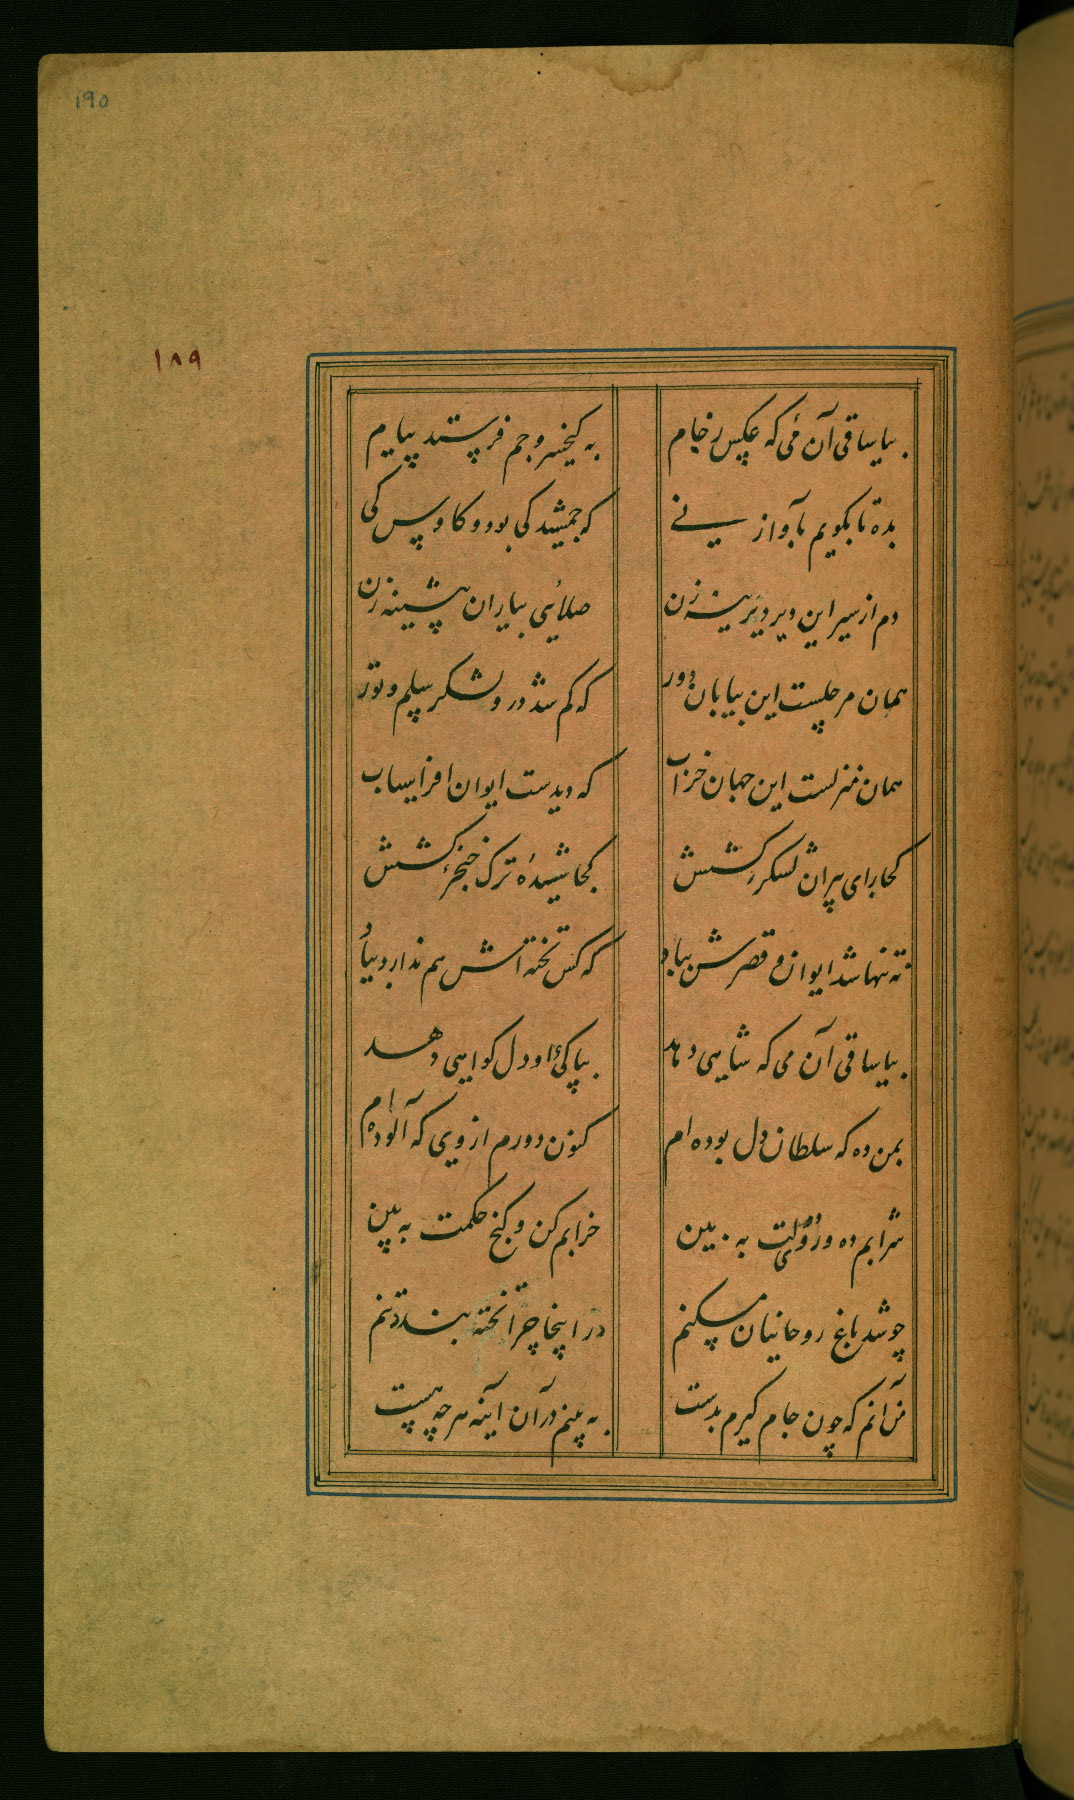 ۱۹۵
۱۸۹
بیا ساقی آن می که عکس ز جام به کیخسرو و جم فرستد پیام
بده تا بکویم بآواز نے که جمشید کی بود و کاوس کی
دم از سیر این دیر دیرینه زن صلائی بیاران پیشینه زن
همان مرحلست این بیابان دور که کم شد درو لشکر سلم و تور
همان منزلست این جهان خراب که دیدست ایوان افراسیاب
کجا رای پیران لشکرکشش کجا شیده ترک خنجرکشش
نه تنها شد ایوان و قصرش بباد که کس تخته اش هم ندارد بیاد
بیا ساقی آن می که شاهی دهد بپاکئ او دل کواهی دهد
بمن ده که سلطان دل بوده ام کنون دورم از وی که آلوده ام
شرابم ده و روی دولت به بین خرابم کن و کنج حکمت به بین
چو شد باغ روحانیان مسکنم در اینجا چرا تخته بند تنم
من آنم که چون جام کیرم بدست به بینم در آن آینه هر چه هست